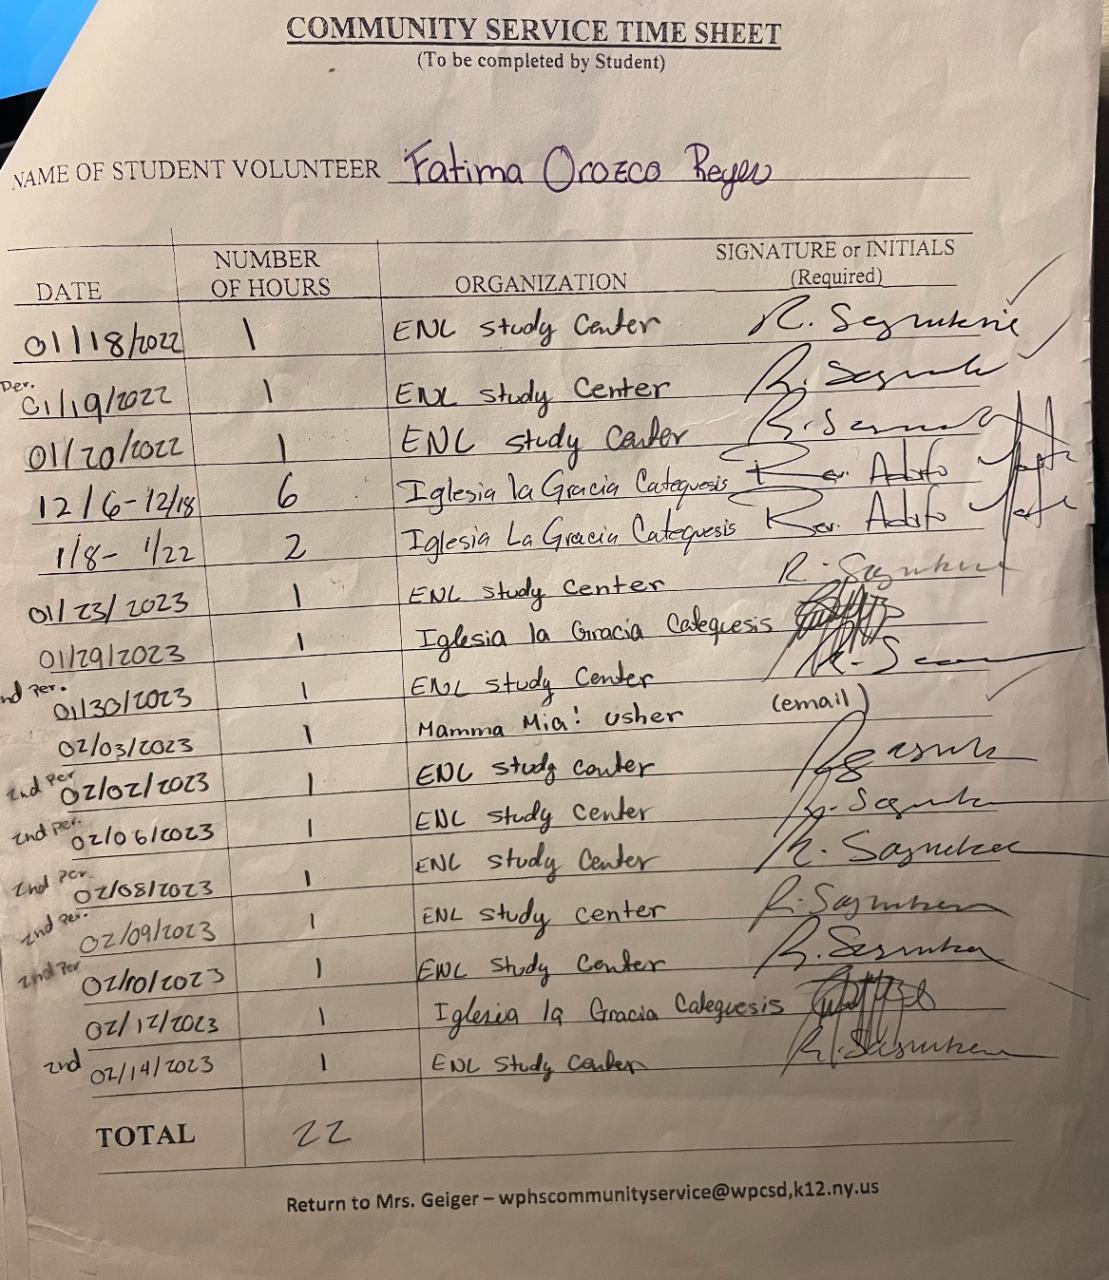 COMMUNITY SERVICE TIME SHEET
(To be completed by Student)
NAME OF STUDENT VOLUNTEER Fatima Orozco Reyes
DATE NUMBER OF HOURS ORGANIZATION SIGNATURE or INITIALS (Required)
01/18/2022 1 ENL study Center R.
Per. 01/19/2022 1 ENL study Center R.
01/20/2022 1 ENL study Center R.
12/6-12/18 6 Iglesia la Gracia Catequesis Rev. Adolfo
1/8- 1/22 2 Iglesia La Gracia Catequesis Rev. Adolfo
01/23/2023 1 ENL study Center R.
01/29/2023 1 Iglesia la Gracia Catequesis
nd Per. 01/30/2023 1 ENL study Center R.
02/03/2023 1 Mamma Mia! usher (email)
2nd Per 02/02/2023 1 ENL study center
2nd Per. 02/06/2023 1 ENL study Center R.
2nd Per 02/08/2023 1 ENL study Center R.
2nd Per. 02/09/2023 1 ENL study center R.
2nd Per 02/10/2023 1 ENL study Center R.
02/12/2023 1 Iglesia la Gracia Categuesis
2nd 02/14/2023 1 ENL study Center R.
TOTAL 22
Return to Mrs. Geiger – wphscommunityservice@wpcsd,k12.ny.us